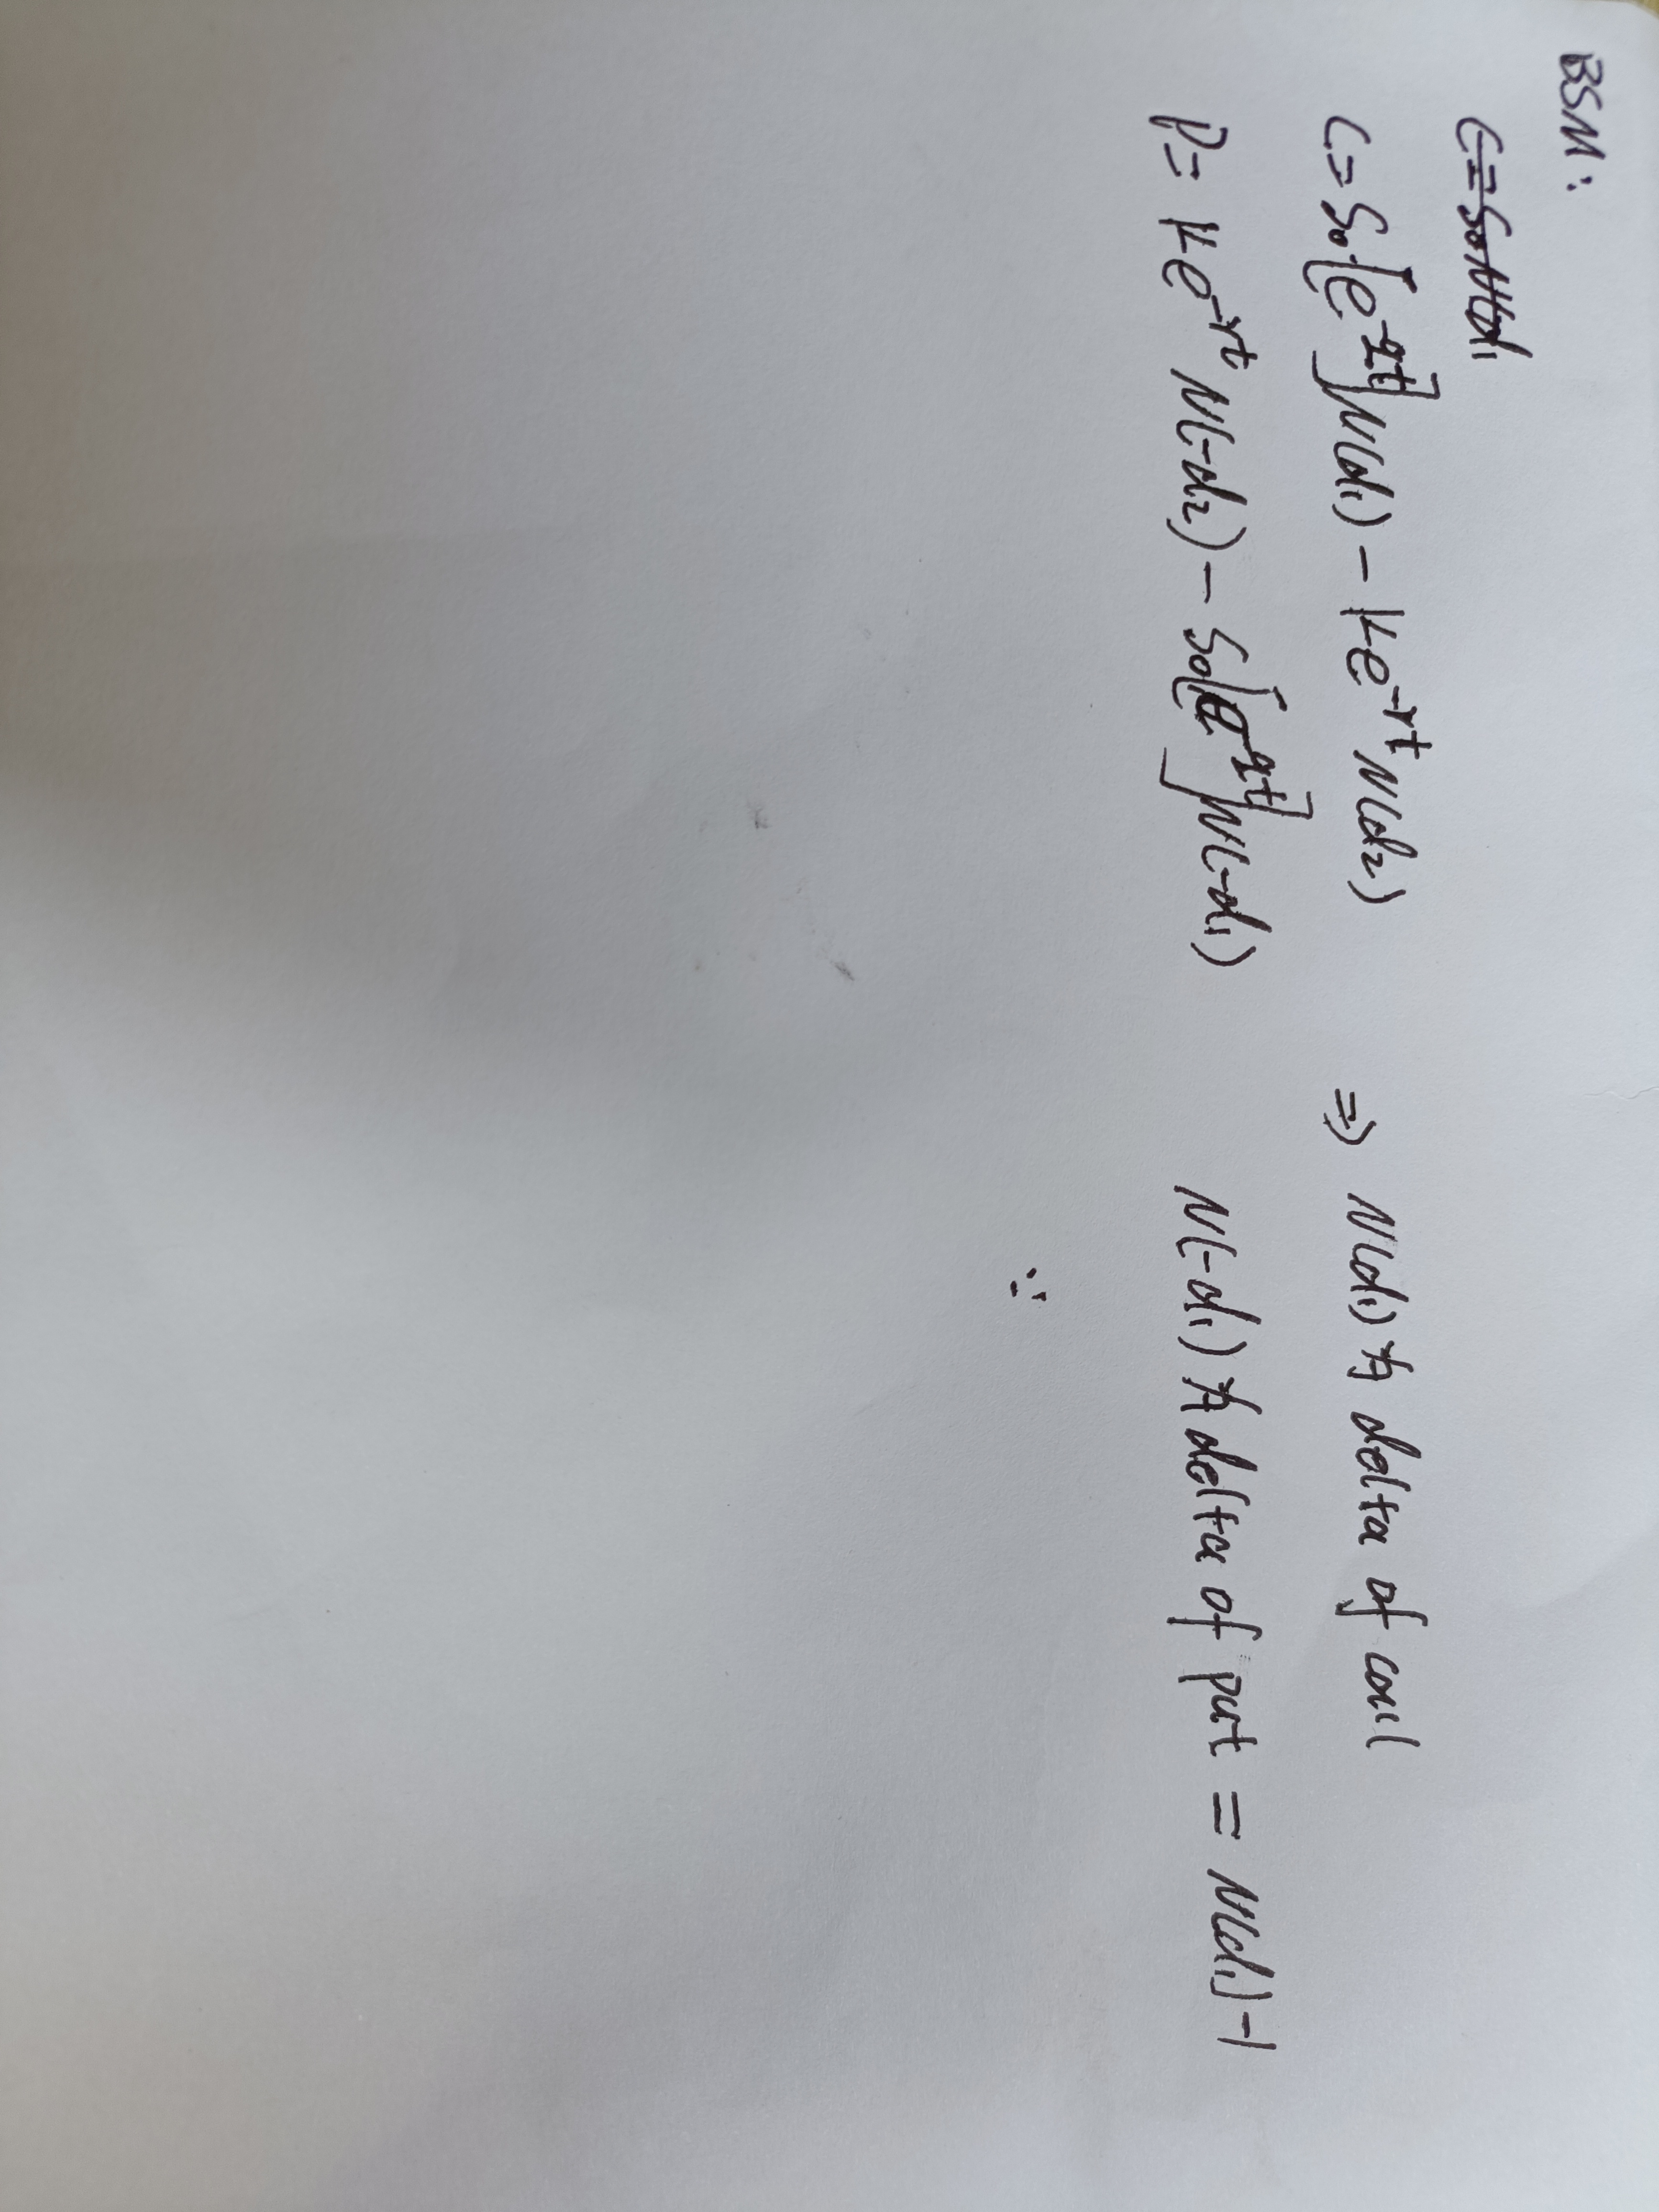 BSM:
C=S₀N(d₁
C=S₀[e^-qt]N(d₁) - Ke^-rt N(d₂) => N(d₁)为 delta of call
P= Ke^-rt N(-d₂) - S₀[e^-qt]N(-d₁) N(-d₁)为 delta of put = N(d₁)-1
∵